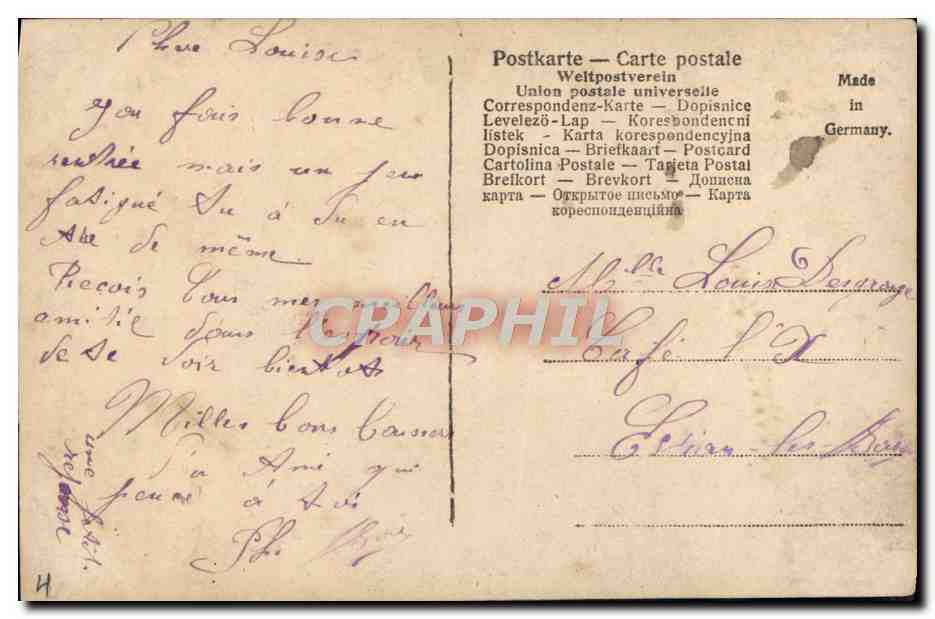 Chère Louise
bonne
rentrée mais un peu
fatigué tu a du en
de même.
Recois tous mes
amitié dans l'espoir
de te voir bientot
Milles bons baisers
Ami qui
pense à toi
une petit.
reponse
4
Postkarte — Carte postale
Weltpostverein
Union postale universelle
Correspondenz-Karte — Dopisnice
Levelező-Lap — Korespondencni
listek - Karta korespondencyjna
Dopisnica — Briefkaart — Postcard
Cartolina Postale — Tarjeta Postal
Brefkort — Brevkort — Дописна
карта — Открытое письмо — Карта
кореспонденційна
Made
in
Germany.
Mlle Louise Desgrange
Café
Evian-les-Bains
CPAPHIL